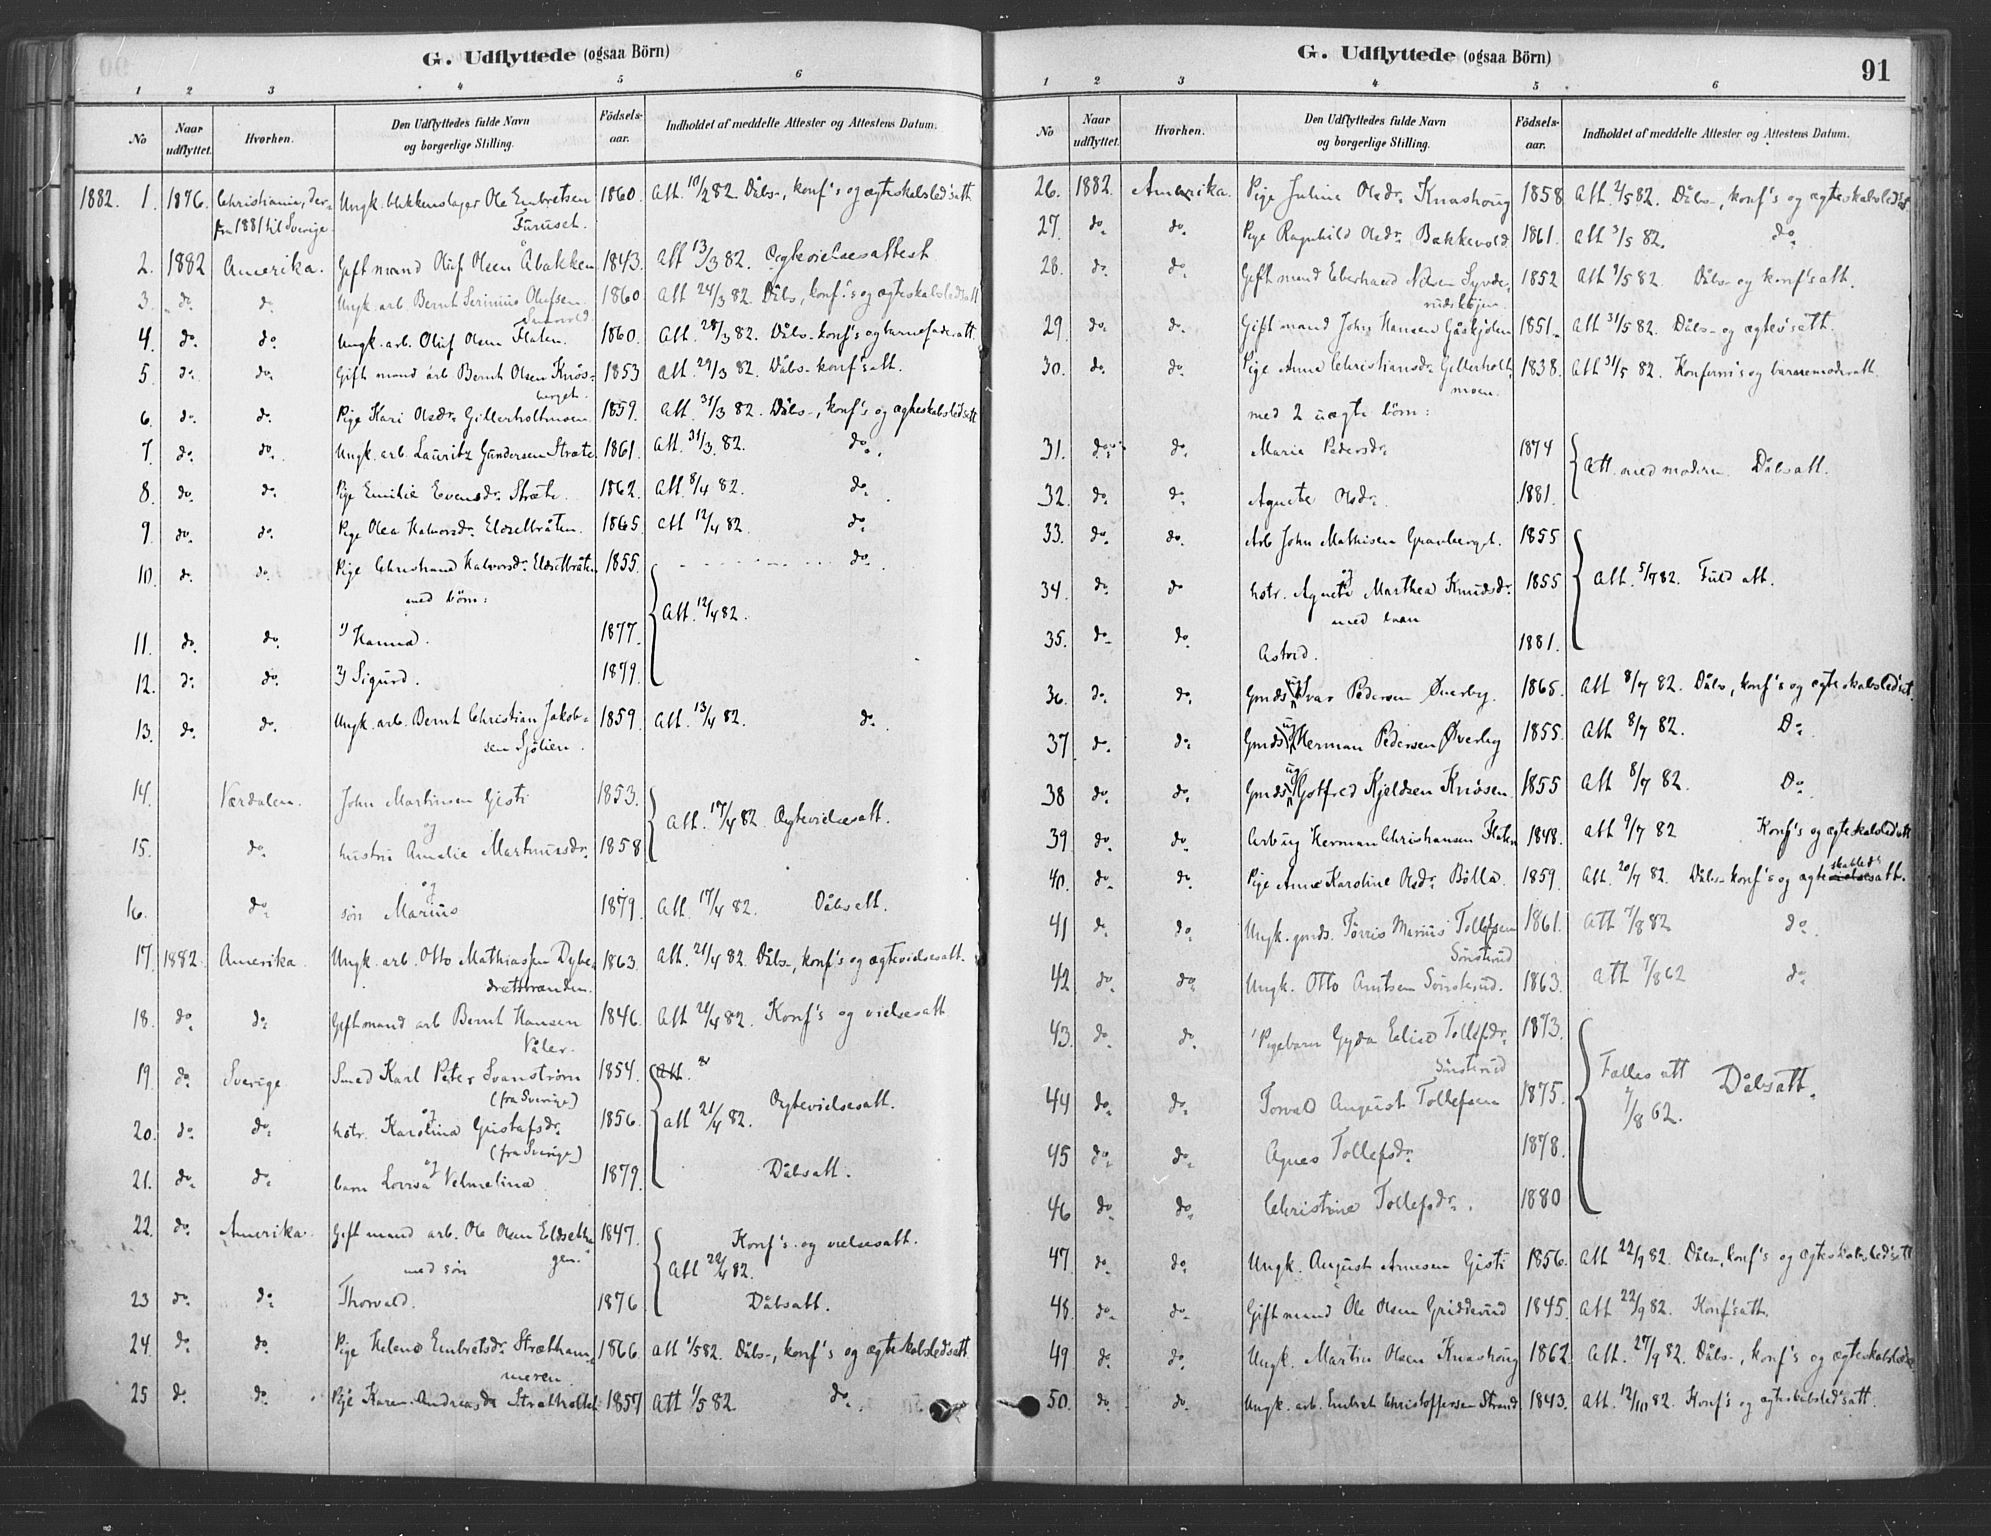 G. Udflyttede (ogsaa Börn)
1 2 3 4 5 6
No Naar udflyttet. Hvorhen. Den Udflyttedes fulde Navn og borgerlige Stilling. Födsels-aar. Indholdet af meddelte Attester og Attestens Datum.
1882. 1. 1876. Christiania, der- Ungk. Ole Embretsen 1860. Att. 10/2 82. Dåbs-, konf's og ægteskabsled'satt
fra 1881 til Sverige Furuset.
2. 1882 Amerika. Gift mand Oluf Olsen Åbakken 1843. Att 13/3 82. Ægtevielsesattest
3. do. do. Ungk. arb. Bernt Serinius Olufsen 1860. Att 24/3 82. Dåbs, konf's og ægteskabsledsatt
4. do. do. Ungk. arb. Oluf Olsen Flaten. 1860. Att. 28/3 82. Dåbs- konf's og barnefaderatt.
5. do. do. Gift mand arb Bernt Olsen Knös- 1853 Att. 29/3 82. Dåbs- konf'satt.
berget.
6. do. do. Pige Kari Olsdr. Gillerholtmoen 1859. Att. 31/3 82. Dåbs-, konf's og ægteskabsledsatt
7. do. do. Ungk. arb. Lauritz Gundersen Stræte 1861. Att. 31/3. 82. do.
8. do. do. Pige Emilie Evensdr. Stræte. 1862. Att. 8/4 82. do.
9. do. do. Pige Olea Halvorsdr. Eldsetbråten. 1865. Att 12/4 82. do.
10. do. do. Pige Christiane Halvorsdr. Eldsetbråten 1855. do.
med börn:
Att. 12/4 82.
11. do. do. 1) Hanna. 1877.
12. do. do. 2) Sigurd. 1879.
13. do. do. Ungk. arb. Bernt Christian Jakob- 1859. Att. 13/4 82. do.
sen Sjölien.
14. Værdalen. John Martinsen Gjsti 1853.
og Att. 17/4 82 Ægtevielsesatt.
15. do. hustru Amalie Martinusdr. 1858
og
16. do. sön Marius 1879. Att. 17/4 82. Dåbsatt.
17. 1882. Amerika Ungk. arb. Otto Mathiassen Dybe- 1863. Att. 21/4 82. Dåbs-, konf's og ægtevielsesatt.
18. do. do. Gift mand arb Bernt Hansen 1846. Att 21/4 82. Konf's og vielsesatt
Våler.
19. do. Sverige Smed Karl Peter Svanström 1854. Att.
(fra Sverige) Ægtevielsesatt.
og
20. do. do. hstr. Karolina Gustafsdr. 1856. Att 21/4 82.
(fra Sverige)
og
21. do. do. barn Lovisa Velmelina 1879. Dåbsatt.
22. do. Amerika. Gift mand arb. Ole Olsen Eldsetha- 1847. Konf's og vielsesatt.
med sön gen. Att 22/4 82.
23 do. do. Thorvald. 1876 Dåbsatt.
24. do. do. Pige Helene Embretsdr. Strætham- 1866. Att 1/5 82. Dåbs-, konf's og ægteskabsled'satt
meren.
25 do. do. Pige Karen Andreasdr Strætholtet 1857 Att 1/5 82. do.
G. Udflyttede (ogsaa Börn) 91
1 2 3 4 5 6
No Naar udflyttet. Hvorhen. Den Udflyttedes fulde Navn og borgerlige Stilling. Födsels-aar. Indholdet af meddelte Attester og Attestens Datum.
26. 1882. Amerika. Pige Juline Olsdr. Knashoug 1858 Att 2/5 82. Dåbs-, konf's og ægteskabsled'satt
27. do. do. Pige Ragnhild Olsdr. Bakkevold 1861. Att 3/5 82. do.
28. do. do. Gift mand Eberhard Nilsen Syvde- 1852 Att 9/5 82. Dåbs- og konf'satt.
29. do. do. Gift mand John Hansen Gåskjölen 1851. Att 31/5 82. Dåbs- og ægtev'satt.
30. do. do. Pige Anne Christiansdr. Gillerholt- 1838. Att 31/5 82. Konferm's og barnemoderatt.
moen.
med 2 uægte börn:
31. do. do. Marie Pedersdr. 1874
Att. med modern Dåbsatt.
32. do. do. Agnete Olsdr. 1881.
33. do. do. Arb John Mathisen Gravberget. 1855
og Att. 5/7 82. Fuld att.
34. do. do hstr. Agnete Marthea Knudsdr. 1855
med barn
35. do. do Astrid. 1881.
36. do. do. Gmds ug Ivar Pedersen Överby. 1865. Att 8/7 82. Dåbs-, konf's og ægteskabsled'satt
37 do. do. Gmds ug Herman Pedersen Överby 1855. Att 8/7 82. Do.
38 do. do. Gmds ug Gotfred Kjeldsen Knösen 1855 Att 8/7 82. Do.
39 do. do. Arb ug Herman Christiansen Flaten 1848. Att 9/7 82 Konf's og ægteskabsled'att
skabled's
40. do. do. Pige Anne Karoline Olsdr. Bölla. 1859. Att. 20/7 82. Dåbs- konf's og ægtevielsesatt.
41 do. do. Ungk. gmds. Törris Marius Tollefsen 1861. Att 7/8 82 do.
Sönsterud
42 do. do. Ungk. Otto Arntsen Sönsterud. 1863. Att 7/8 62 do.
43. do. do. Pigebarn Gyda Elise Tollefsdr. 1873.
Sönsterud
Fælles att Dåbsatt.
44 do. do. Torvald August Tollefsen 1875.
7/8 62.
45 do. do. Agnes Tollefsdr. 1878.
46 do. do. Christine Tollefsdr. 1880
47. do. do. Ungk. August Arnesen Gjsti 1856. Att 22/9 82. Dåbs-, konf's og ægteskabsled'satt
48. do. do. Gift mand Ole Olsen Griddevud 1845. Att 22/9 82. Konf'satt.
49 do. do. Ungk. Martin Olsen Knashoug 1862. Att. 27/9 82. Dåbs-, konf's og ægteskabsledsa
50. do. do. Ungk. arb. Embret Christoffersen Strand 1843. Att. 12/10 82. Konf's og ægteskabsled'satt.